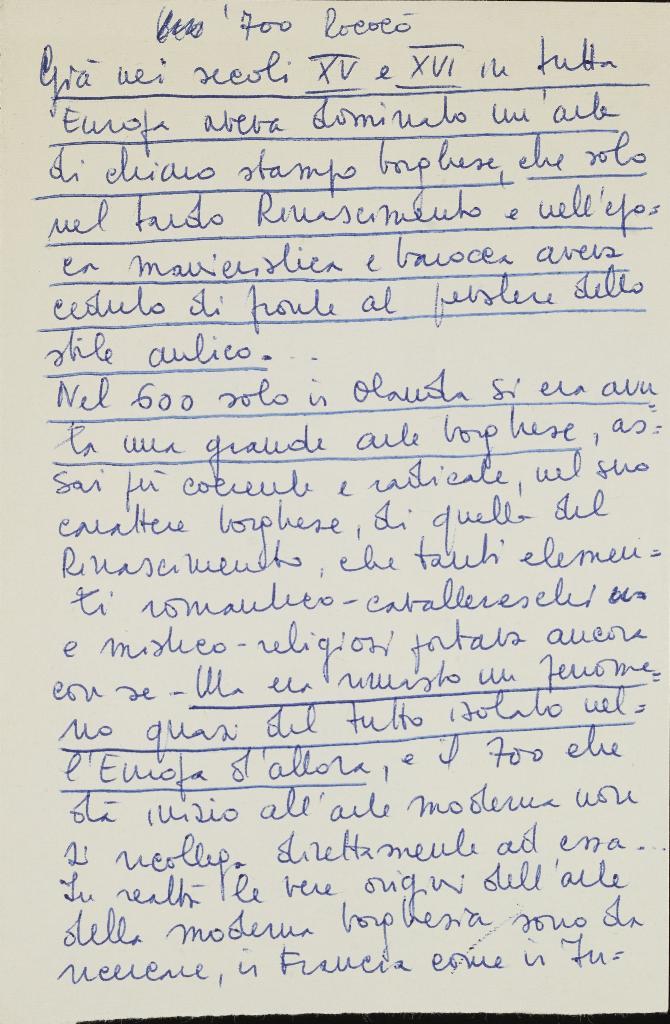 '700 Rococò
Già nei secoli XV e XVI in tutta
Europa aveva dominato un'arte
di chiaro stampo borghese, che solo
nel tardo Rinascimento e nell'epo=
ca manieristica e barocca aveva
ceduto di fronte al prevalere dello
stile aulico. . .
Nel 600 solo in Olanda si era avu
ta una grande arte borghese, as=
sai più coerente e radicale, nel suo
carattere borghese, di quella del
Rinascimento, che tanti elemen=
ti romantico-cavallereschi
e mistico-religiosi portava ancora
con se - Ma era rimasto un fenome=
no quasi del tutto isolato nel=
l'Europa d'allora, e il 700 che
dà inizio all'arte moderna non
si ricollega direttamente ad essa...
In realtà le vere origini dell'arte
della moderna borghesia sono da
ricercare, in Francia come in In=